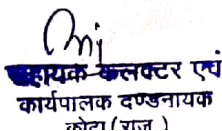 सहायक कलक्टर एवं
कार्यपालक दण्डनायक
कोटा (राज.)